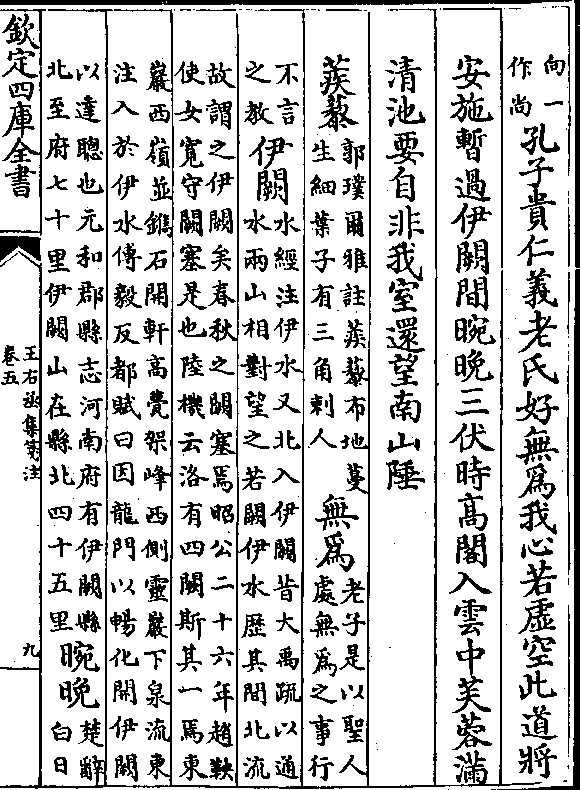 向一
作尚
孔子貴仁義老氏好無為我心若虛空此道將
安施暫過伊闕間晼晚三伏時高閣入雲中芙蓉滿
清池要自非我室還望南山陲
蒺藜
郭璞爾雅註蒺藜布地蔓
生細葉子有三角刺人
無為
老子是以聖人
處無為之事行
不言
之教
伊闕
水經注伊水又北入伊闕昔大禹疏以通
水兩山相對望之若闕伊水歷其間北流
故謂之伊闕矣春秋之闕塞焉昭公二十六年趙鞅
使女寬守闕塞是也陸機云洛有四闕斯其一焉東
巖西嶺並鐫石開軒高甍架峰西側靈巖下泉流東
注入於伊水傅毅反都賦曰因龍門以暢化開伊闕
以達聰也元和郡縣志河南府有伊闕縣
北至府七十里伊闕山在縣北四十五里
晼晚
楚辭
白日
欽定四庫全書
王右丞集箋注
卷五
九